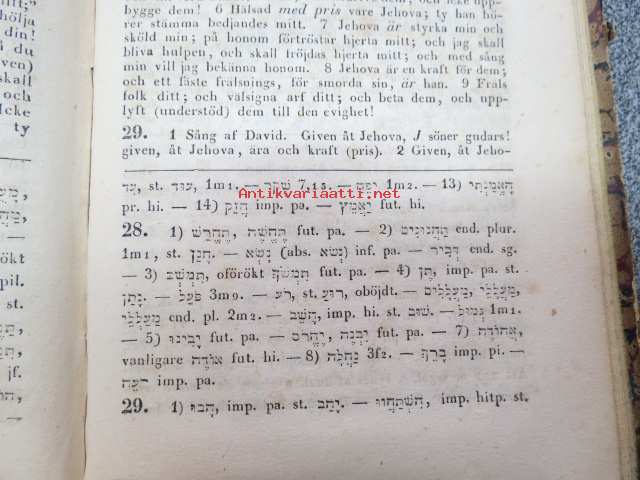 bygge dem! 6 Hälsad med pris vare Jehova; ty han hö-
rer stämma bedjandes mitt. 7 Jehova är styrka min och
sköld min; på honom förtröstar hjerta mitt; och jag skall
bliva hulpen, och skall tröjdas hjerta mitt; och med sång
min vill jag bekänna honom. 8 Jehova är en kraft för dem;
och ett fäste frälsnings, för smorda sin, är han. 9 Fräls
folk ditt; och välsigna arf ditt; och beta dem, och upp-
lyft (understöd) dem till den evighet!
29. 1 Sång af David. Given åt Jehova, J söner gudars!
given, åt Jehova, ära och kraft (pris). 2 Given, åt Jeho-
עֵד, st. עוּד, 1m1. — 7,13. — 1m2. — 13) הֶאֱמַנְתִּי
pr. hi. — 14) חֲזַק imp. pa. — יַאֲמֵץ fut. hi.
28. 1) תֶּחֱשֶׁה, תֶּחֱרַשׁ fut. pa. — 2) תַּחֲנוּנִים end. plur.
1m1, st. חָנַן. — נָשָׂא (abs. נְשֹׂא) inf. pa. — דְּבִיר end. sg.
— 3) תִּמְשֹׁךְ, oförökt תִּמְשֹׁךְ fut. pa. — 4) תֵּן, imp. pa. st.
נָתַן. — פֹּעַל 3m9. — רֹעַ, st. רוּעַ, oböjdt. — מַעֲלָלִים, מַעֲלְלֵי,
מַעַלְלֵי end. pl. 2m2. — הָשֵׁב, imp. hi. st. שׁוּב. — גְּמוּל 1m1.
— 5) יָבִינוּ fut. pa. — יִבְנֶה, יֶהֱרֹס fut. pa. — 7) אֲהוֹדֶה,
vanligare אוֹדֶה fut. hi. — 8) נַחֲלָה 3f2. — בָּרֵךְ imp. pi. —
רְעֵה imp. pa.
29. 1) הָבוּ, imp. pa. st. יָהַב. — הִשְׁתַּחֲווּ, imp. hitp. st.
hölja
din!
å du
ven)
skall
och
Icke
ty
örökt
pil.
st.
jf.
Antikvariaatti.net